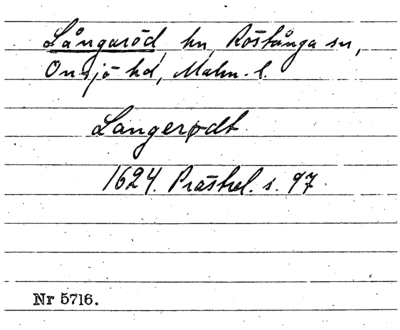 Långaröd, hn, Röstånga sn,
Onsjö hd, Malm. l.
Langerødt
1624. Prästrel. s. 97.
Nr 5716.